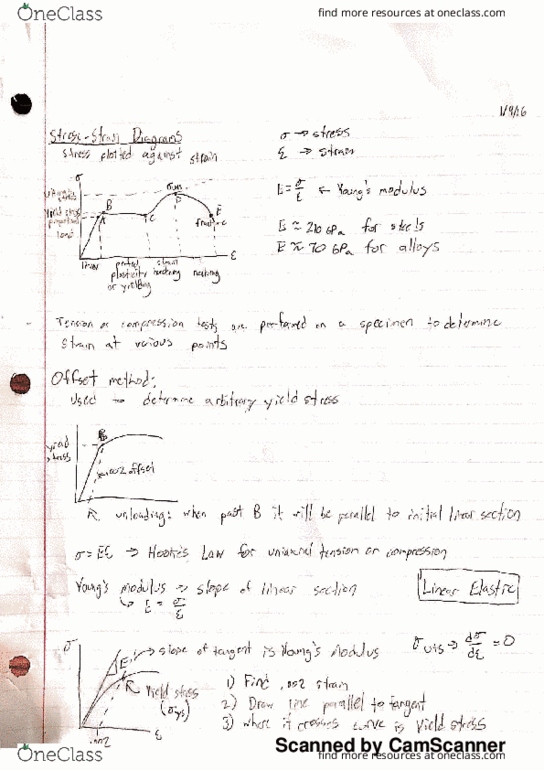 OneClass
find more resources at oneclass.com
1/9/16
Stress-Strain Diagrams
stress plotted against strain
σ → stress
ε → strain
E = σ/ε ← Young's modulus
E ≈ 210 GPa for steels
E ≈ 70 GPa for alloys
σ
ultimate stress
yield stress
proportional
limit
B
A
C
σult
D
E
fracture
ε
linear
perfect plasticity or yielding
strain hardening
necking
Tension or compression tests are performed on a specimen to determine
strain at various points
Offset method:
used to determine arbitrary yield stress
yield stress
B
.002 offset
unloading: when past B it will be parallel to initial linear section
σ = Eε → Hooke's Law for uniaxial tension or compression
Young's modulus → slope of linear section
Linear Elastic
↳ E = σ/ε
σ
E
→ slope of tangent is Young's Modulus
σults → dσ/dε = 0
Yield stress
(σys)
.002
ε
1) Find .002 strain
2) Draw line parallel to tangent
3) where it crosses curve is Yield stress
Scanned by CamScanner
OneClass
find more resources at oneclass.com